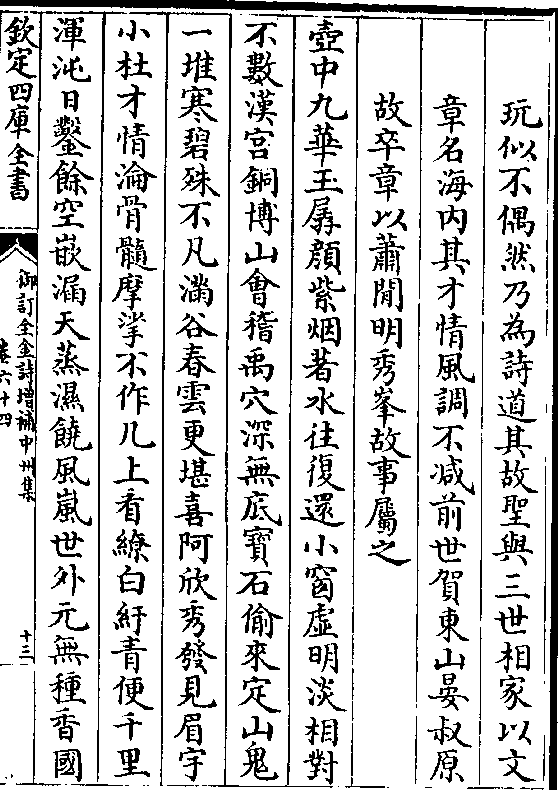 玩似不偶然乃為詩道其故聖與三世相家以文
章名海内其才情風調不减前世賀東山晏叔原
故卒章以蕭閒明秀峯故事屬之
壺中九華玉孱顔紫烟著水往復還小窗虚明淡相對
不數漢宫銅博山會稽禹穴深無底寳石偷來定山鬼
一堆寒碧殊不凡滿谷春雲更堪喜阿欣秀發見眉宇
小杜才情淪骨髓摩挲不作几上看繚白紆青便千里
渾沌日鑿餘空嵌漏天蒸濕饒風嵐世外元無種香國
欽定四庫全書
御訂全金詩增補中州集
卷六十四
十三